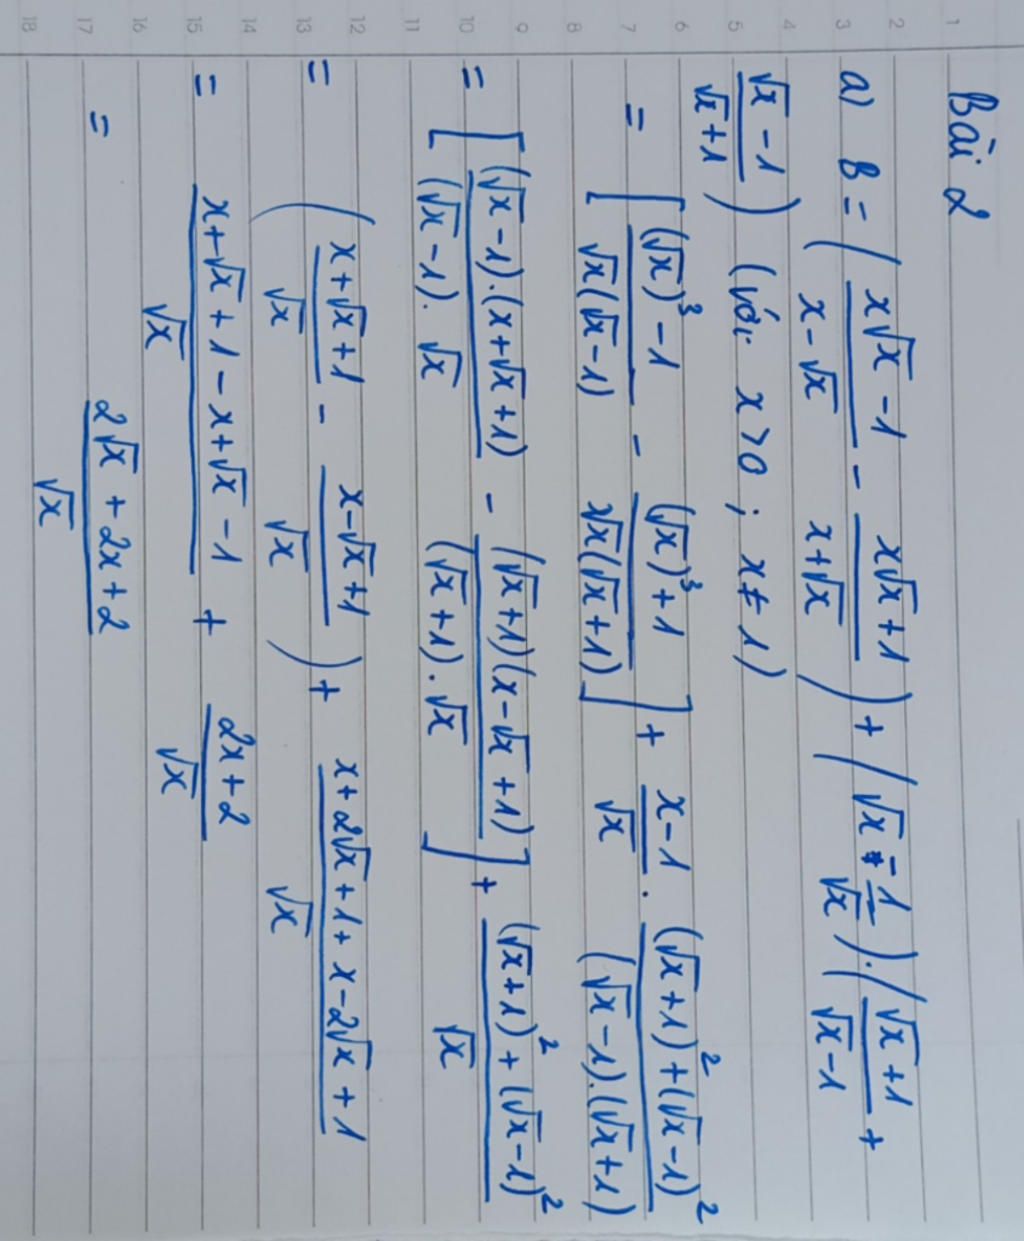 1 2 3 4 5 6 7 8 9 10 11 12 13 14 15 16 17 18
Bài 2
a) B = ( (x√x - 1)/(x - √x) - (x√x + 1)/(x + √x) ) + ( √x - 1/√x ) . ( (√x + 1)/(√x - 1) +
(√x - 1)/(√x + 1) ) (với x > 0 ; x ≠ 1)
= [ ((√x)³ - 1)/(√x(√x - 1)) - ((√x)³ + 1)/(√x(√x + 1)) ] + (x - 1)/√x . ((√x + 1)² + (√x - 1)²)/((√x - 1).(√x + 1))
= [ ((√x - 1).(x + √x + 1))/((√x - 1). √x) - ((√x + 1)(x - √x + 1))/((√x + 1). √x) ] + ((√x + 1)² + (√x - 1)²)/√x
= ( (x + √x + 1)/√x - (x - √x + 1)/√x ) + (x + 2√x + 1 + x - 2√x + 1)/√x
= (x + √x + 1 - x + √x - 1)/√x + (2x + 2)/√x
= (2√x + 2x + 2)/√x